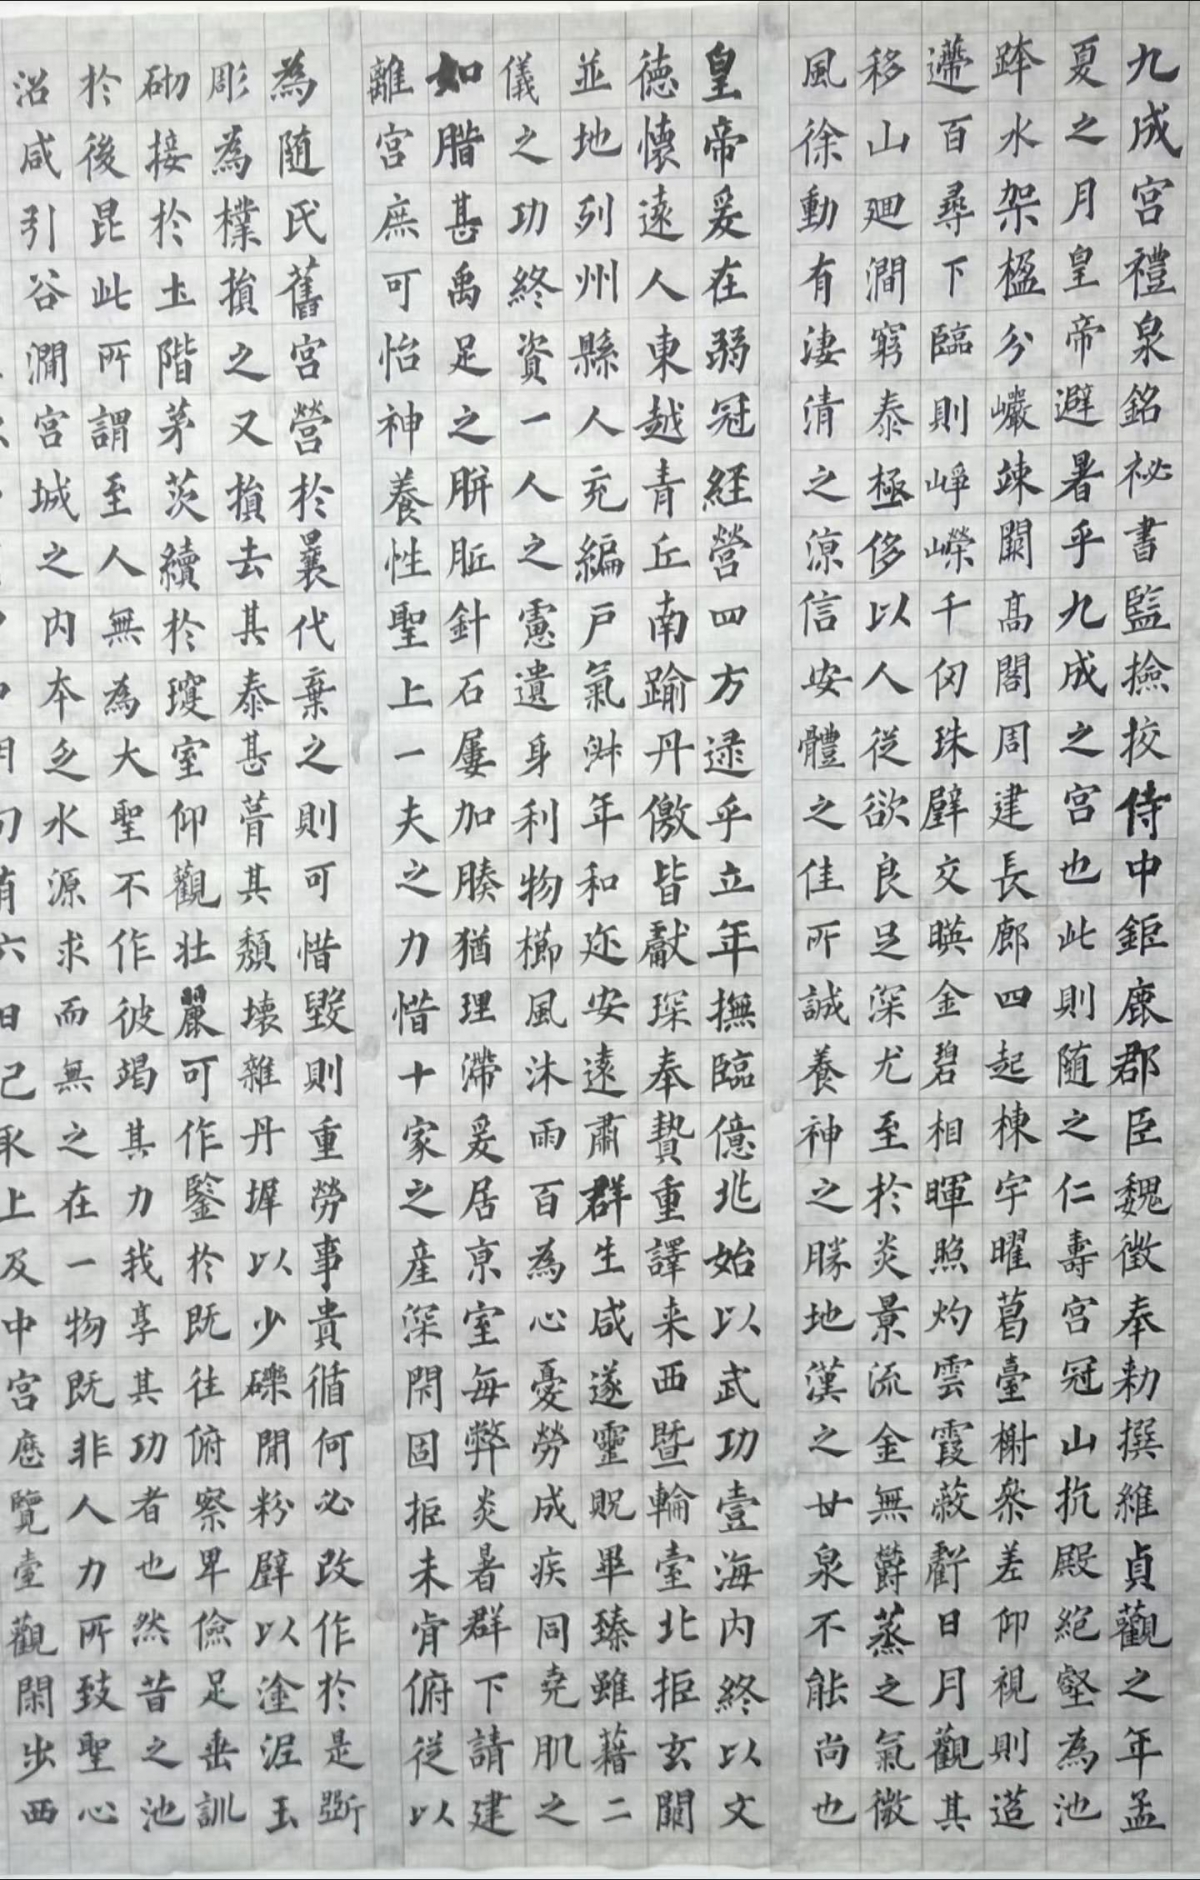 九成宮禮泉銘祕書監撿挍侍中鉅鹿郡臣魏徵奉勅撰維貞觀之年孟
夏之月皇帝避暑乎九成之宮也此則隨之仁壽宮冠山抗殿絕壑為池
跨水架楹分巖竦闕高閣周建長廊四起棟宇曜葛臺榭叅差仰視則迢
遰百尋下臨則崢嶸千仞珠璧交暎金碧相暉照灼雲霞蔽虧日月觀其
移山廻澗窮泰極侈以人從欲良足深尤至於炎景流金無欝蒸之氣微
風徐動有淒清之涼信安體之佳所誠養神之勝地漢之甘泉不能尚也
皇帝爰在弱冠經營四方逯乎立年撫臨億兆始以武功壹海内終以文
德懷遠人東越青丘南踰丹儌皆獻琛奉贄重譯来西暨輪臺北拒玄闕
並地列州縣人充編戶氣淑年和迩安遠肅群生咸遂靈貺畢臻雖藉二
儀之功終資一人之慮遺身利物櫛風沐雨百為心憂勞成疾同堯肌之
如腊甚禹足之胼胝針石屢加腠猶理滯爰居京室每弊炎暑群下請建
離宮庶可怡神養性聖上一夫之力惜十家之產深閇固拒未肯俯從以
為隨氏舊宮營於曩代棄之則可惜毀則重勞事貴循何必改作於是斲
彫為樸損之又損去其泰甚葺其頹壞雜丹墀以少礫間粉壁以塗泥玉
砌接於土階茅茨續於瓊室仰觀壯麗可作鑒於既往俯察卑儉足垂訓
於後昆此所謂至人無為大聖不作彼竭其力我享其功者也然昔之池
沼咸引谷澗宮城之内本乏水源求而無之在一物既非人力所致聖心
月旬有六日己亥上及中宮歷覽臺觀閑步西